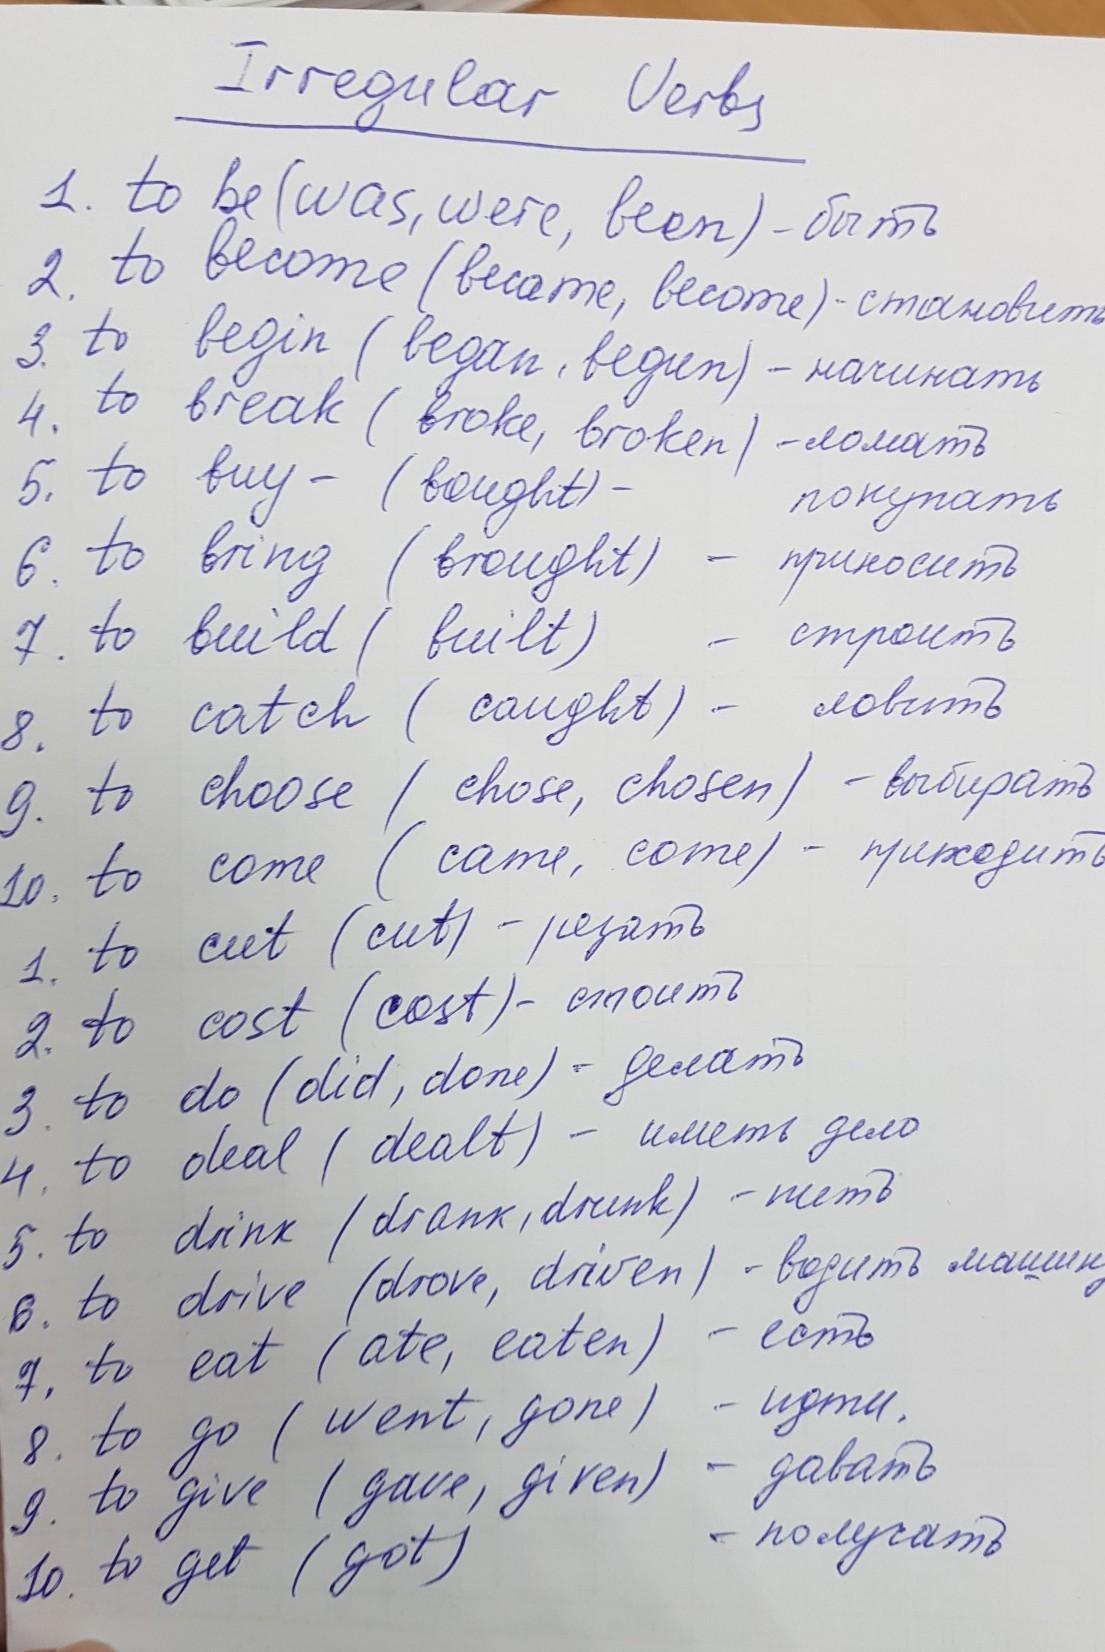 Irregular Verbs
1. to be (was, were, been) - быть
2. to become (became, become) - становить
3. to begin (began, begun) - начинать
4. to break (broke, broken) - ломать
5. to buy - (bought) - покупать
6. to bring (brought) - приносить
7. to build (built) - строить
8. to catch (caught) - ловить
9. to choose (chose, chosen) - выбирать
10. to come (came, come) - приходить
1. to cut (cut) - резать
2. to cost (cost) - стоить
3. to do (did, done) - делать
4. to deal (dealt) - иметь дело
5. to drink (drank, drunk) - пить
6. to drive (drove, driven) - водить машину
7. to eat (ate, eaten) - есть
8. to go (went, gone) - идти.
9. to give (gave, given) - давать
10. to get (got) - получать